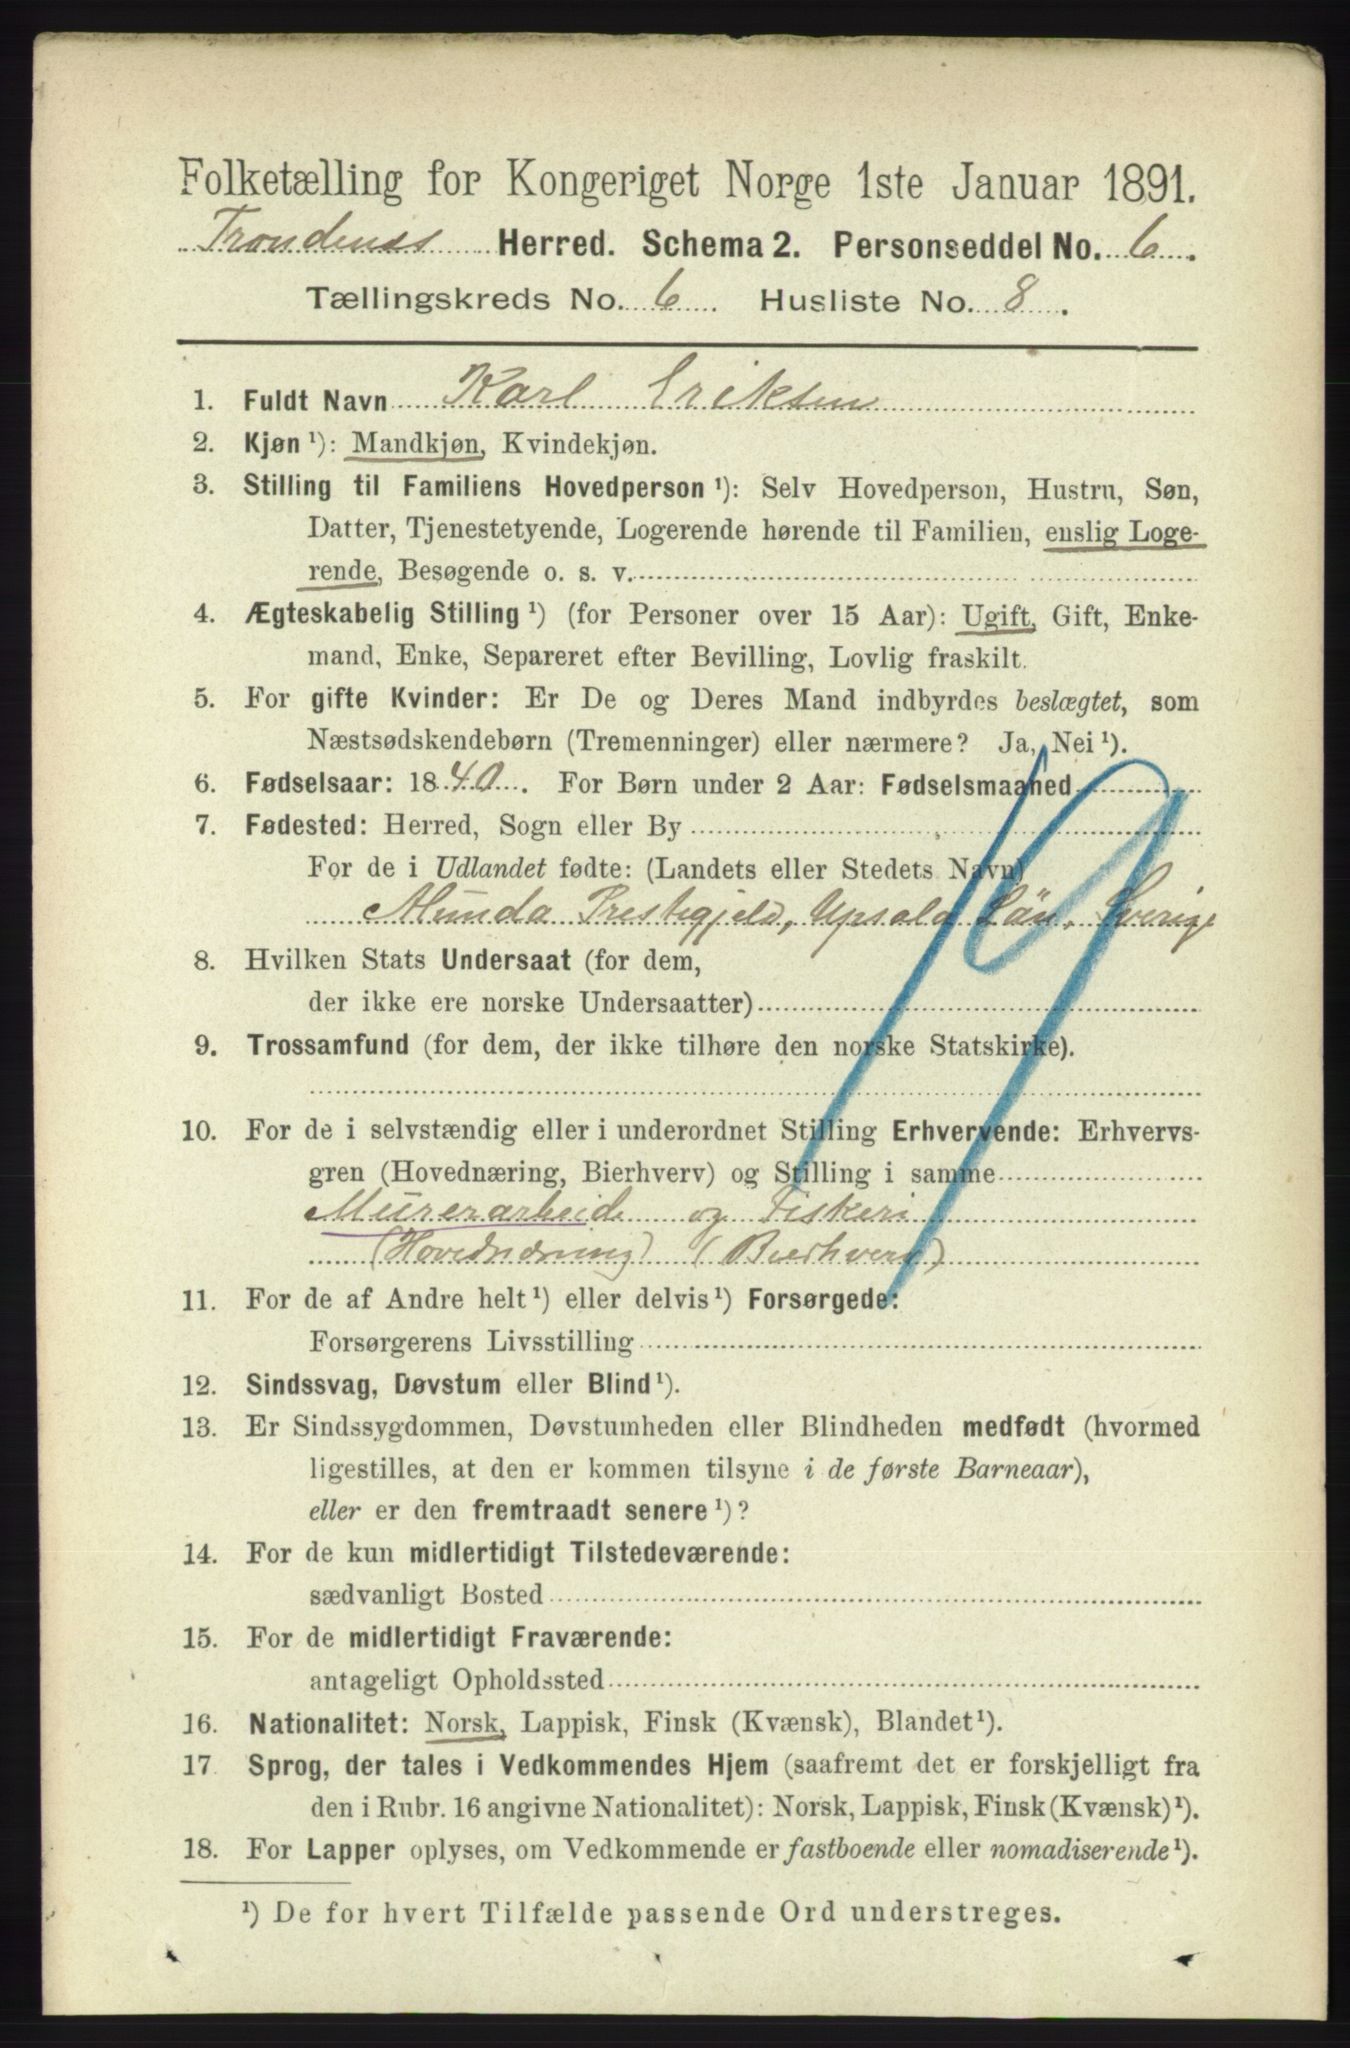 Folketælling for Kongeriget Norge 1ste Januar 1891.
Trondenes Herred. Schema 2. Personseddel No. 6.
Tællingskreds No. 6. Husliste No. 8.
1. Fuldt Navn Karl Eriksen
2. Kjøn ¹): Mandkjøn, Kvindekjøn.
3. Stilling til Familiens Hovedperson ¹): Selv Hovedperson, Hustru, Søn,
Datter, Tjenestetyende, Logerende hørende til Familien, enslig Loge-
rende, Besøgende o. s. v.
4. Ægteskabelig Stilling ¹) (for Personer over 15 Aar): Ugift, Gift, Enke-
mand, Enke, Separeret efter Bevilling, Lovlig fraskilt.
5. For gifte Kvinder: Er De og Deres Mand indbyrdes beslægtet, som
Næstsødskendebørn (Tremenninger) eller nærmere? Ja, Nei ¹).
6. Fødselsaar: 1840. For Børn under 2 Aar: Fødselsmaaned
7. Fødested: Herred, Sogn eller By
For de i Udlandet fødte: (Landets eller Stedets Navn)
Munda Prestegjeld, Upsala Län, Sverige
8. Hvilken Stats Undersaat (for dem,
der ikke ere norske Undersaatter)
9. Trossamfund (for dem, der ikke tilhøre den norske Statskirke).
10. For de i selvstændig eller i underordnet Stilling Erhvervende: Erhvervs-
gren (Hovednæring, Bierhverv) og Stilling i samme
Murerarbeide og Fiskeri
(Hovednæring) (Bierhverv)
19
11. For de af Andre helt ¹) eller delvis ¹) Forsørgede:
Forsørgerens Livsstilling
12. Sindssvag, Døvstum eller Blind ¹).
13. Er Sindssygdommen, Døvstumheden eller Blindheden medfødt (hvormed
ligestilles, at den er kommen tilsyne i de første Barneaar),
eller er den fremtraadt senere ¹)?
14. For de kun midlertidigt Tilstedeværende:
sædvanligt Bosted
15. For de midlertidigt Fraværende:
antageligt Opholdssted
16. Nationalitet: Norsk, Lappisk, Finsk (Kvænsk), Blandet ¹).
17 Sprog, der tales i Vedkommendes Hjem (saafremt det er forskjelligt fra
den i Rubr. 16 angivne Nationalitet): Norsk, Lappisk, Finsk (Kvænsk) ¹).
18. For Lapper oplyses, om Vedkommende er fastboende eller nomadiserende ¹).
¹) De for hvert Tilfælde passende Ord understreges.